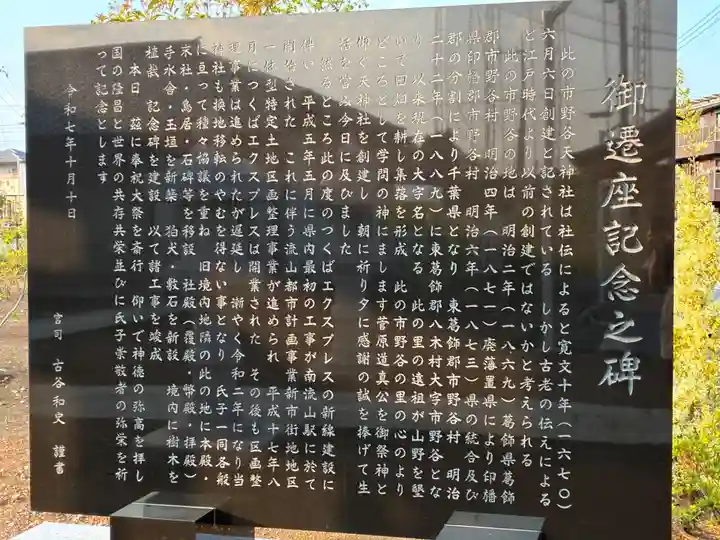 御遷座記念之碑
此の市野谷天神社は社伝によると寛文十年(一六七〇)
六月六日創建と記されている しかし古老の伝えによる
と江戸時代より以前の創建ではないかと考えられる
此の市野谷の地は 明治二年(一八六九)葛飾県葛飾
郡市野谷村 明治四年(一八七一)廃藩置県により印旛
県印旛郡市野谷村 明治六年(一八七三)県の統合及び
郡の分割により千葉県となり 東葛飾郡市野谷村 明治
二十二年(一八八九)に東葛飾郡八木村大字市野谷とな
り 以来現在の大字名となる 此の里の遠祖が山野を墾
いて田畑を耕し集落を形成 此の市野谷の里の心のより
どころとして学問の神にまします菅原道真公を御祭神と
仰ぐ天神社を創建し 朝に祈り夕に感謝の誠を捧げて生
活を営み今日に及びました
然るところ此の度のつくばエクスプレスの新線建設に
伴い 平成五年五月に県内最初の工事が南流山駅に於て
開始された これに伴う流山都市計画事業新市街地地区
一体型特定土地区画整理事業が進められ 平成十七年八
月につくばエクスプレスは開業された その後も区画整
理事業は進められたが遅延し 漸やく令和二年になり当
神社も換地移転のやむを得ない事となり 氏子一同各般
に亘って種々協議を重ね 旧境内地隣の此の地に本殿・
末社・鳥居・石碑等を移設 社殿(覆殿・幣殿・拝殿)
手水舎・玉垣を新築 狛犬・敷石を新設 境内に樹木を
植栽 記念碑を建設 以て諸工事を竣成
本日 茲に奉祝大祭を斎行 仰いで神徳の弥高を拝し
国の隆昌と世界の共存共栄並びに氏子崇敬者の弥栄を祈
って記念とします
令和七年十月十日
宮司 古谷和史 謹書